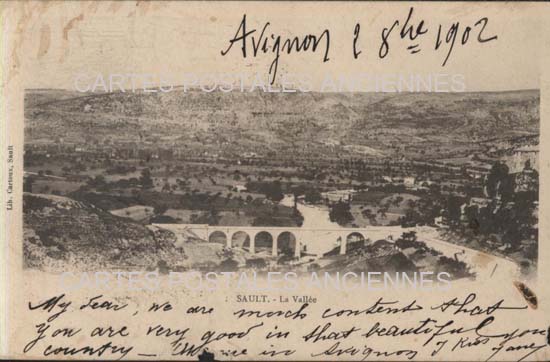 Avignon 2 8bre 1902
CARTES POSTALES ANCIENNES
CARTES POSTALES ANCIENNES
Lib. Cartoux, Sault
SAULT. - La Vallée
CARTES POSTALES ANCIENNES
My dear, we are much content that
you are very good in that beautiful
country - in Avignon I Kiss you